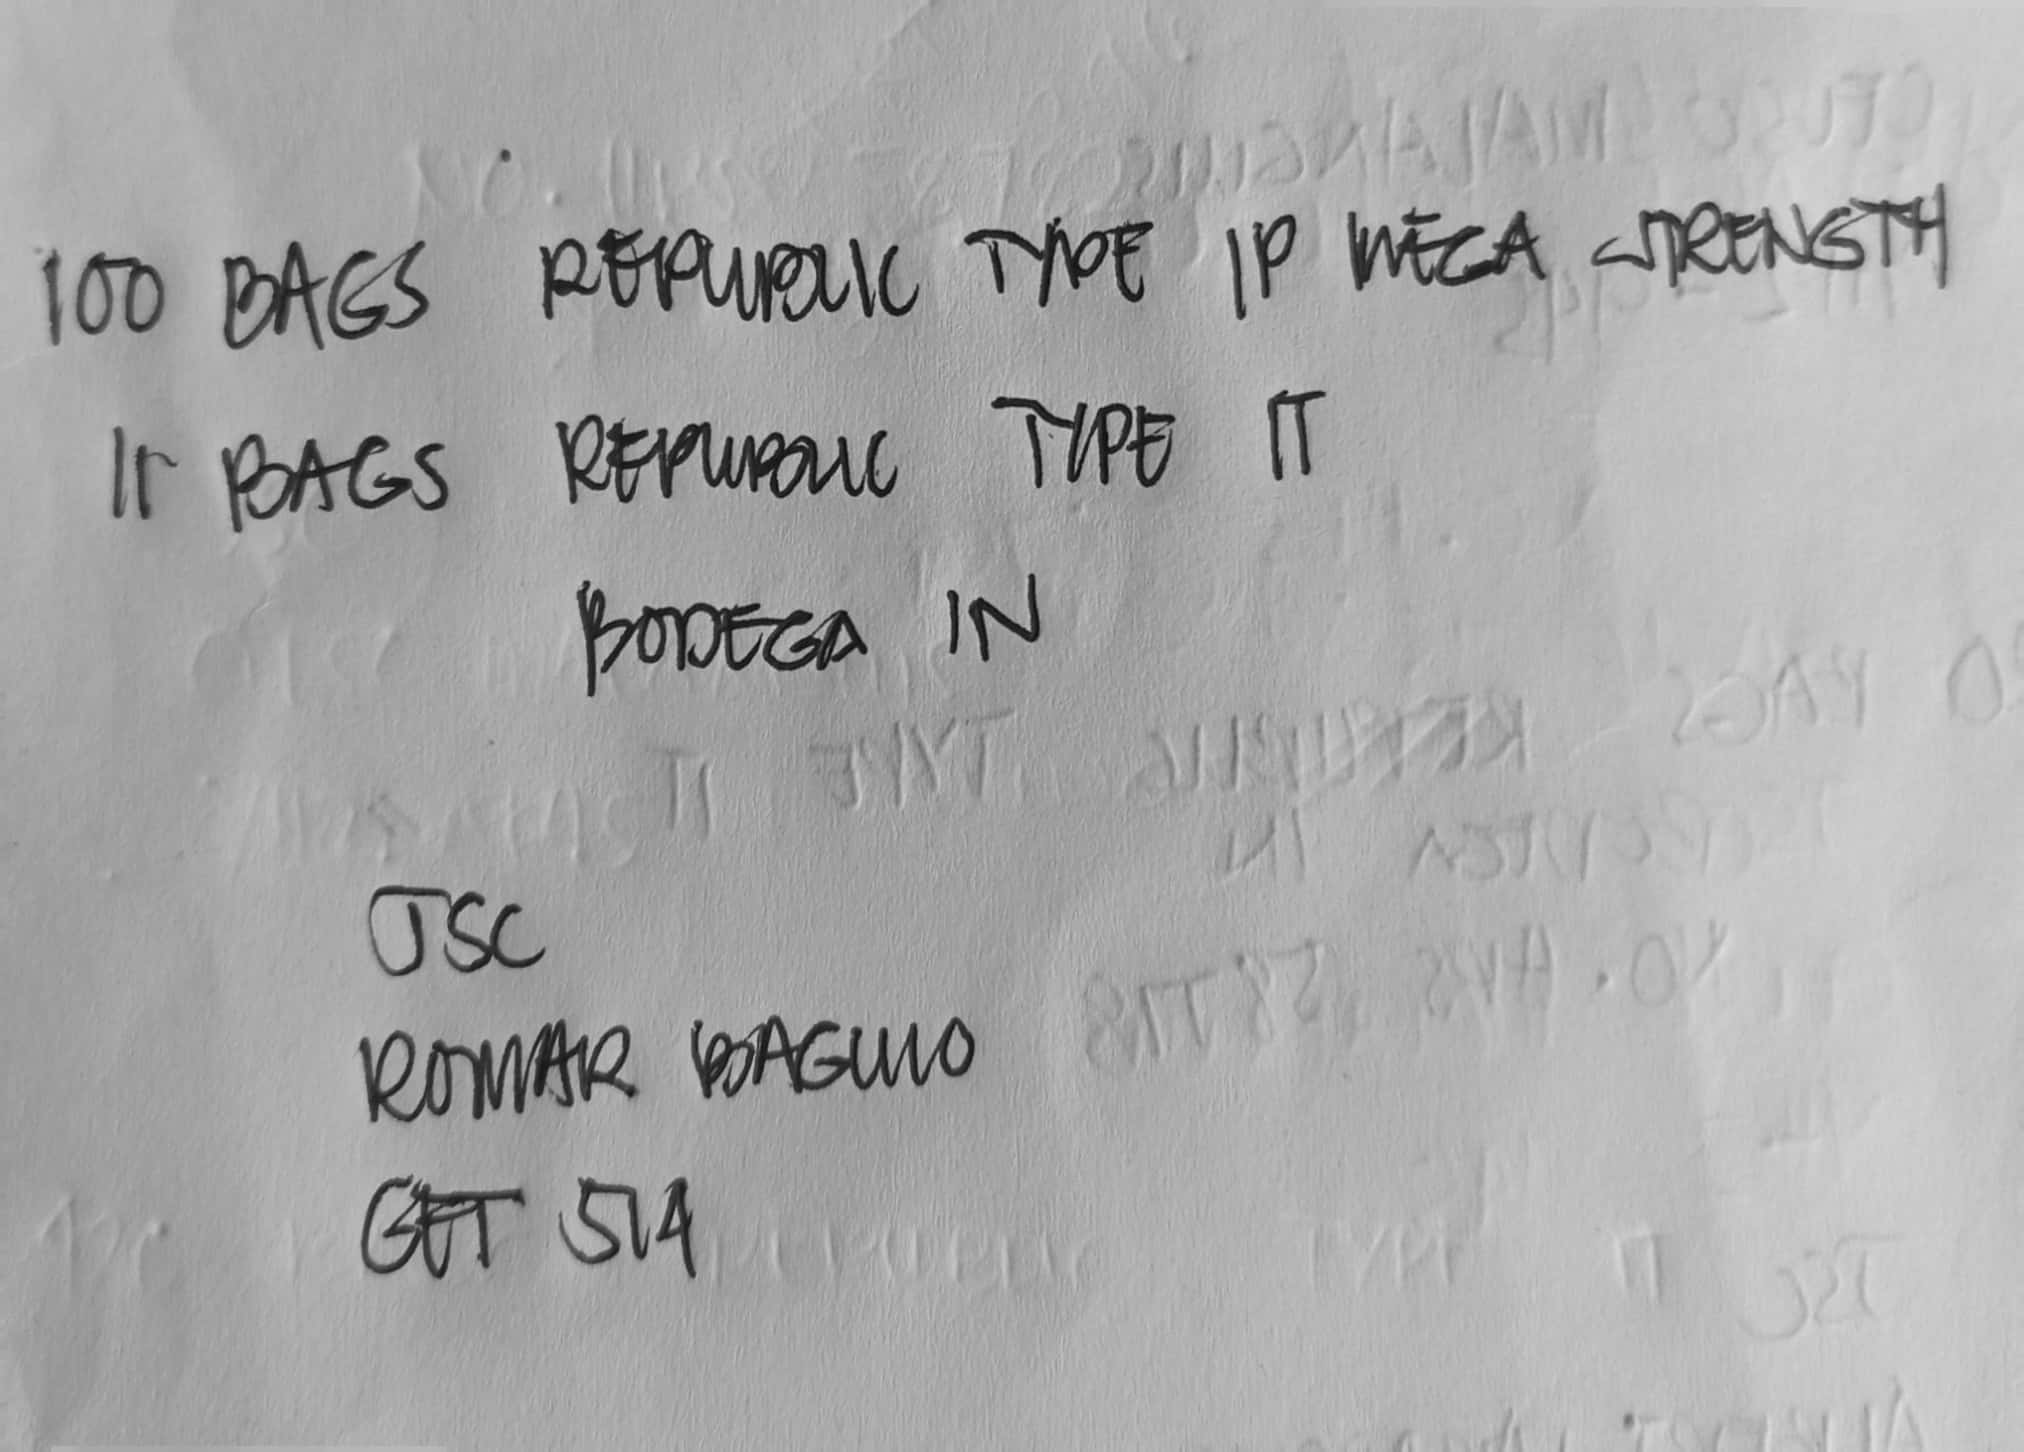 100 BAGS REPUBLIC TYPE 1P MEGA STRENGTH
BAGS REPUBLIC TYPE 1T
BODEGA IN
JSC
ROMAR BAGUIO
GET 514